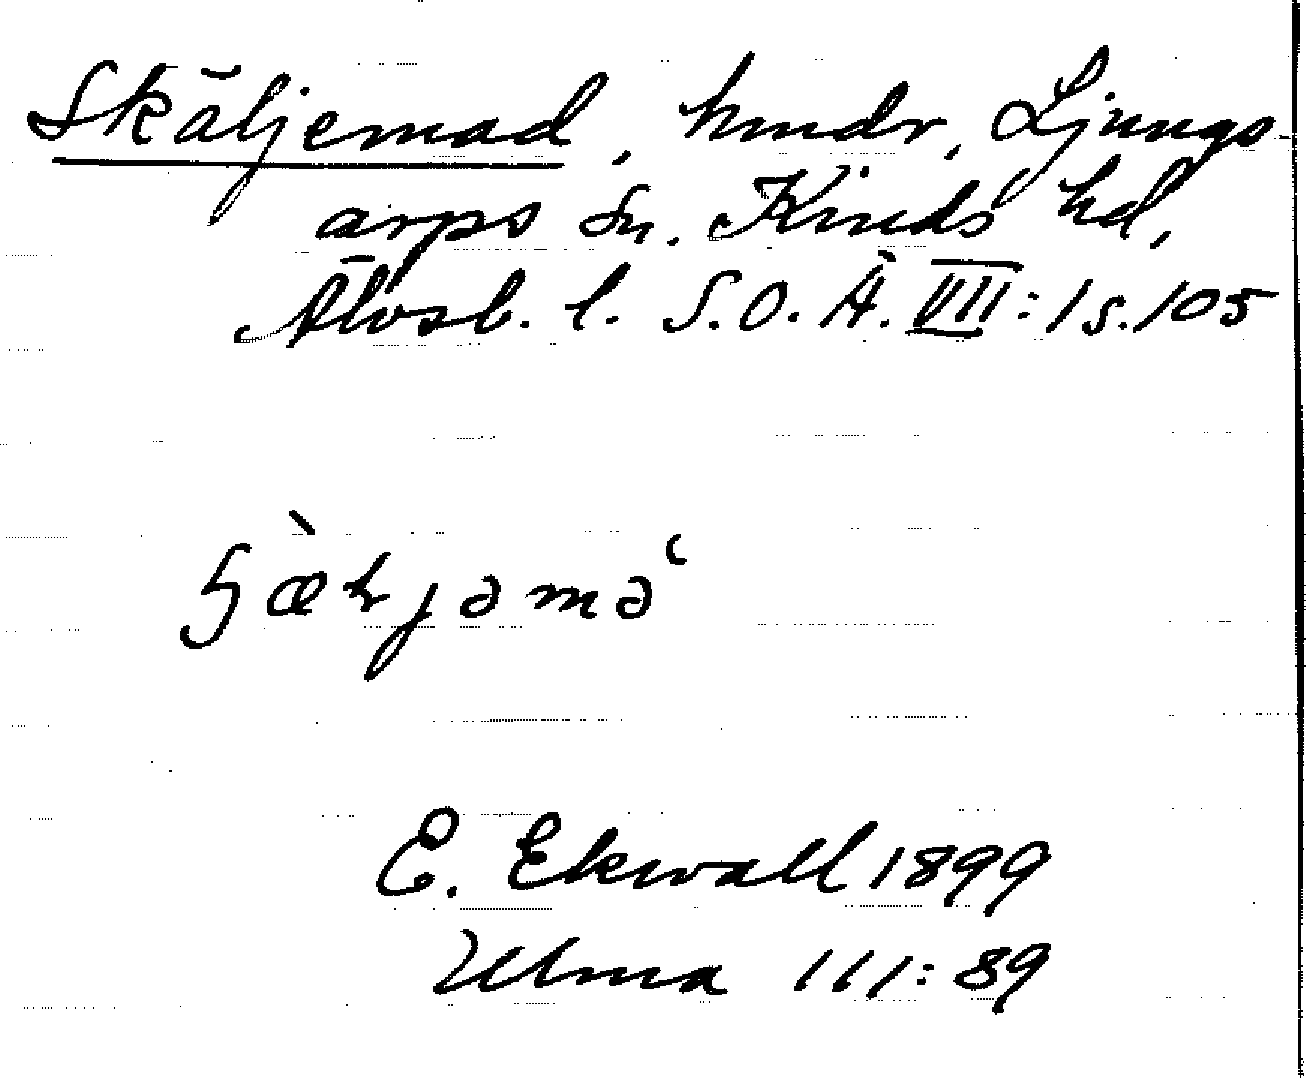 Skäljemad, hmdr, Ljungs
arps sn. Kinds hd,
Älvsb. l. S.O.Ä. VIII:1 s.105
E. Ekwall 1899
Ulma 111:89